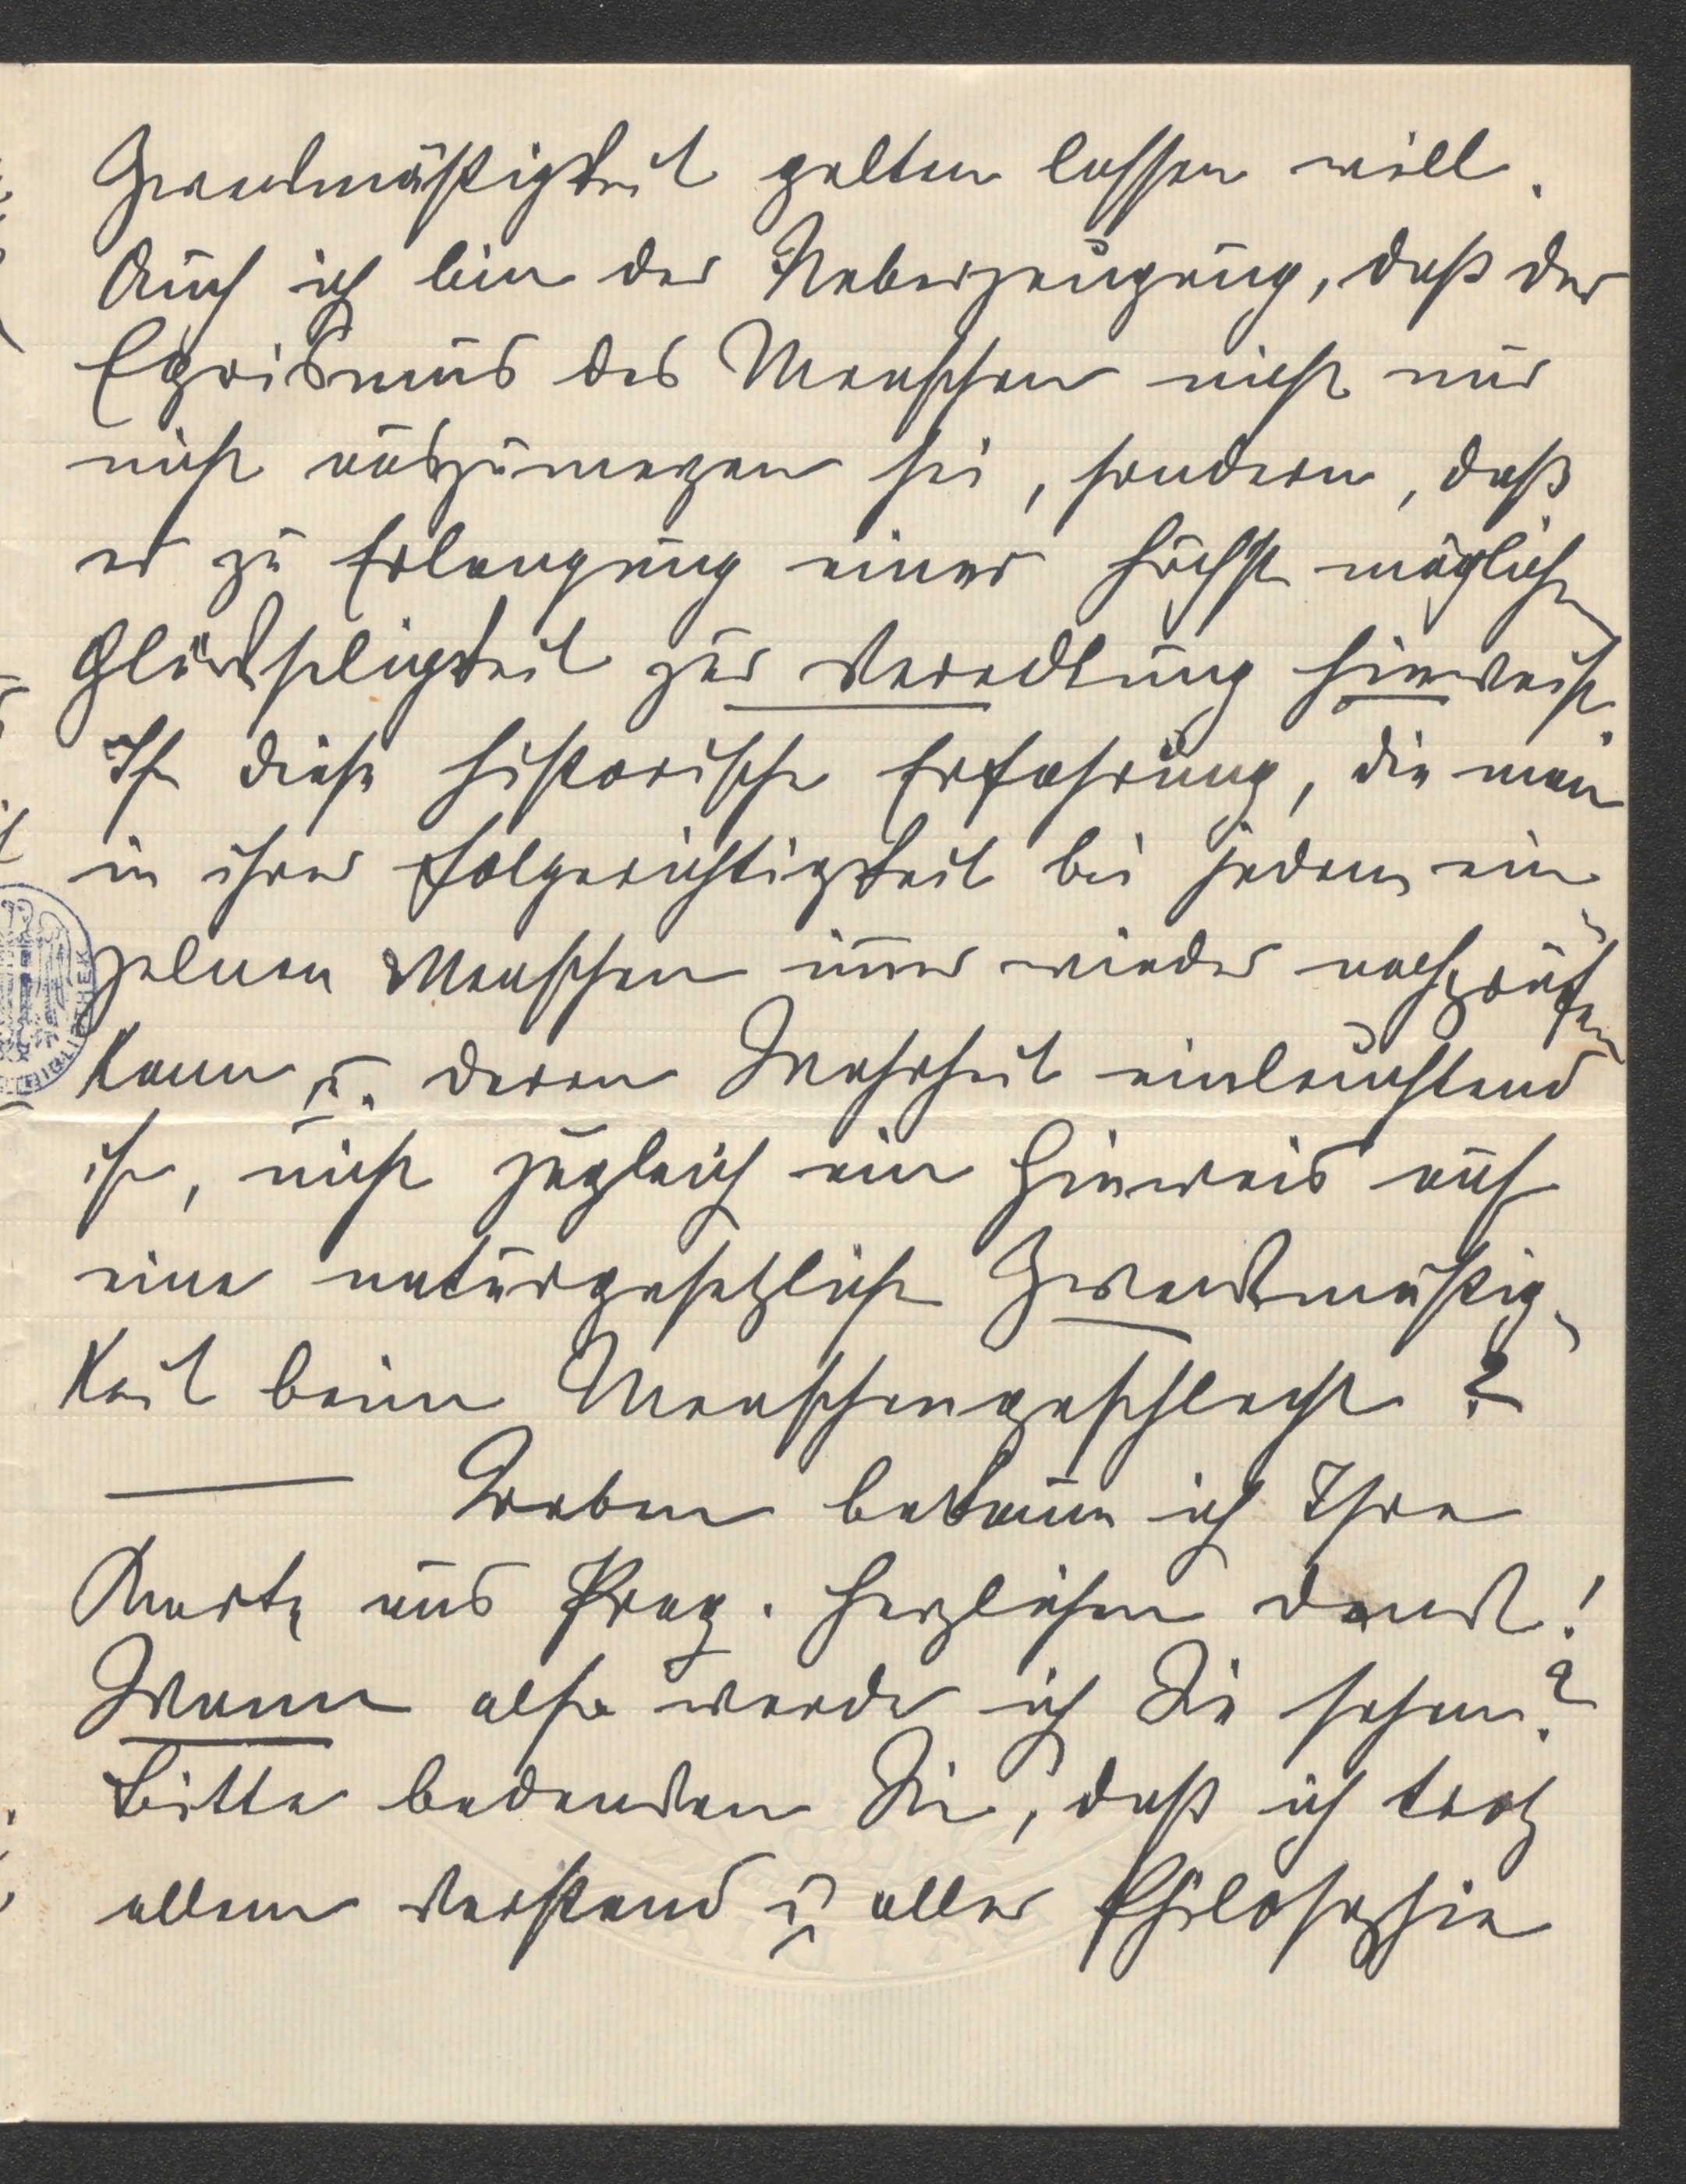 Zweckmäßigkeit gelten lassen will.
Auch ich bin der Ueberzeugung, daß der
Egoismus des Menschen nicht nur
nicht auszumerzen sei, sondern, daß
er zu Erlangung einer höchst möglichen
Glückseligkeit zur Veredlung hinweist.
Ist diese historische Erfahrung, die man
in ihrer Folgerichtigkeit bei jedem ein-
zelnen Menschen immer wieder nachprüfen
kann u. deren Wahrheit einleuchtend
ist, nicht zugleich ein Hinweis auf
eine naturgesetzliche Zweckmäßig-
keit beim Menschengeschlecht?
— Soeben bekam ich Ihre
Karte aus Prag. Herzlichen Dank!
Wann also werde ich Sie sehen?
Bitte bedenken Sie, daß ich trotz
allem Verstand u. aller Philosophie